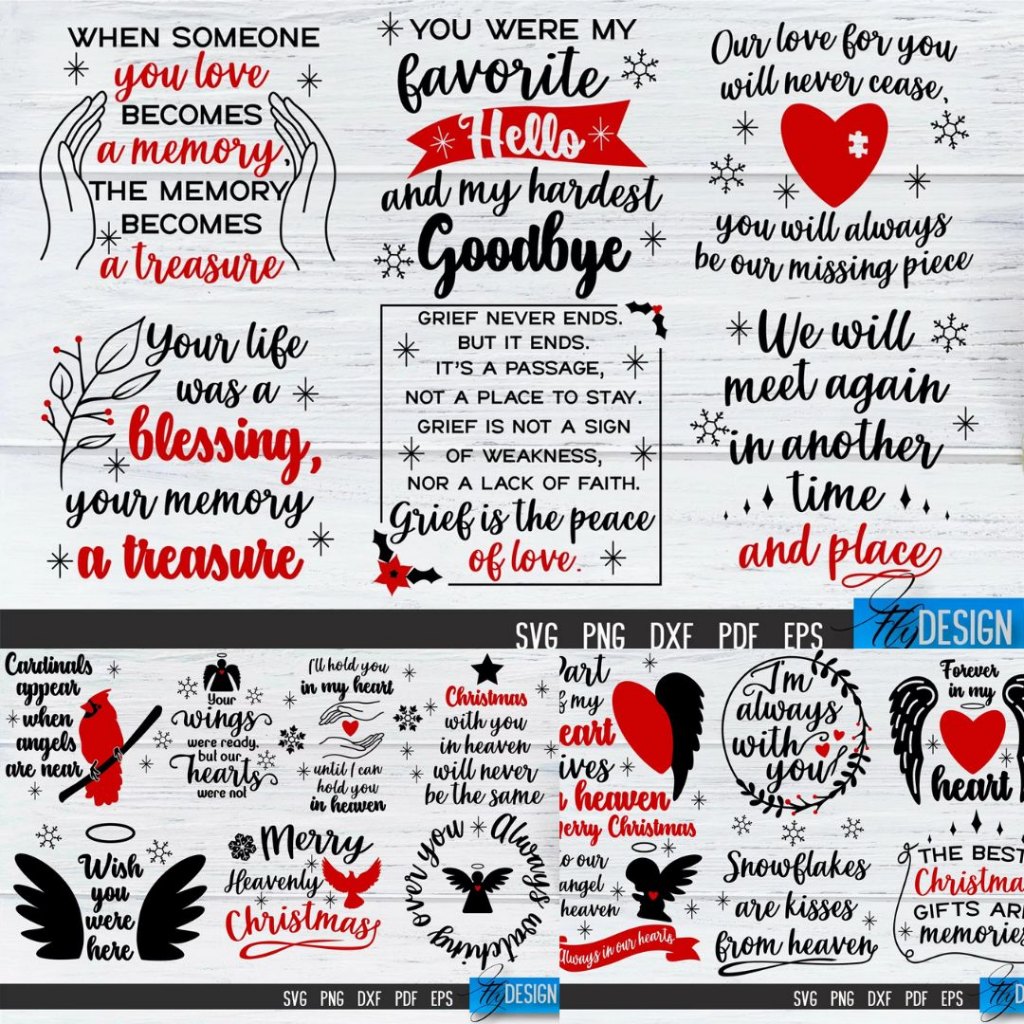 WHEN SOMEONE
you love
BECOMES
a memory,
THE MEMORY
BECOMES
a treasure
YOU WERE MY
favorite
Hello
and my hardest
Goodbye
Our love for you
will never cease,
you will always
be our missing piece
Your life
was a
blessing,
your memory
a treasure
GRIEF NEVER ENDS.
BUT IT ENDS.
IT'S A PASSAGE,
NOT A PLACE TO STAY.
GRIEF IS NOT A SIGN
OF WEAKNESS,
NOR A LACK OF FAITH.
Grief is the peace
of love.
We will
meet again
in another
time
and place
SVG PNG DXF PDF EPS
Fly DESIGN
Cardinals
appear
when
angels
are near
Your
wings
were ready,
but our
hearts
were not
I'll hold you
in my heart
until I can
hold you
in heaven
Christmas
with you
in heaven
will never
be the same
Wish
you
were
here
Merry
Heavenly
Christmas
Always watching over you
SVG PNG DXF PDF EPS
Fly DESIGN
Part
of my
heart
lives
in heaven
Merry Christmas
I'm
always
with
you
Forever
in my
heart
To our
angel
heaven
Always in our hearts
Snowflakes
are kisses
from heaven
THE BEST
Christmas
GIFTS ARE
memories
SVG PNG DXF PDF EPS
Fly D